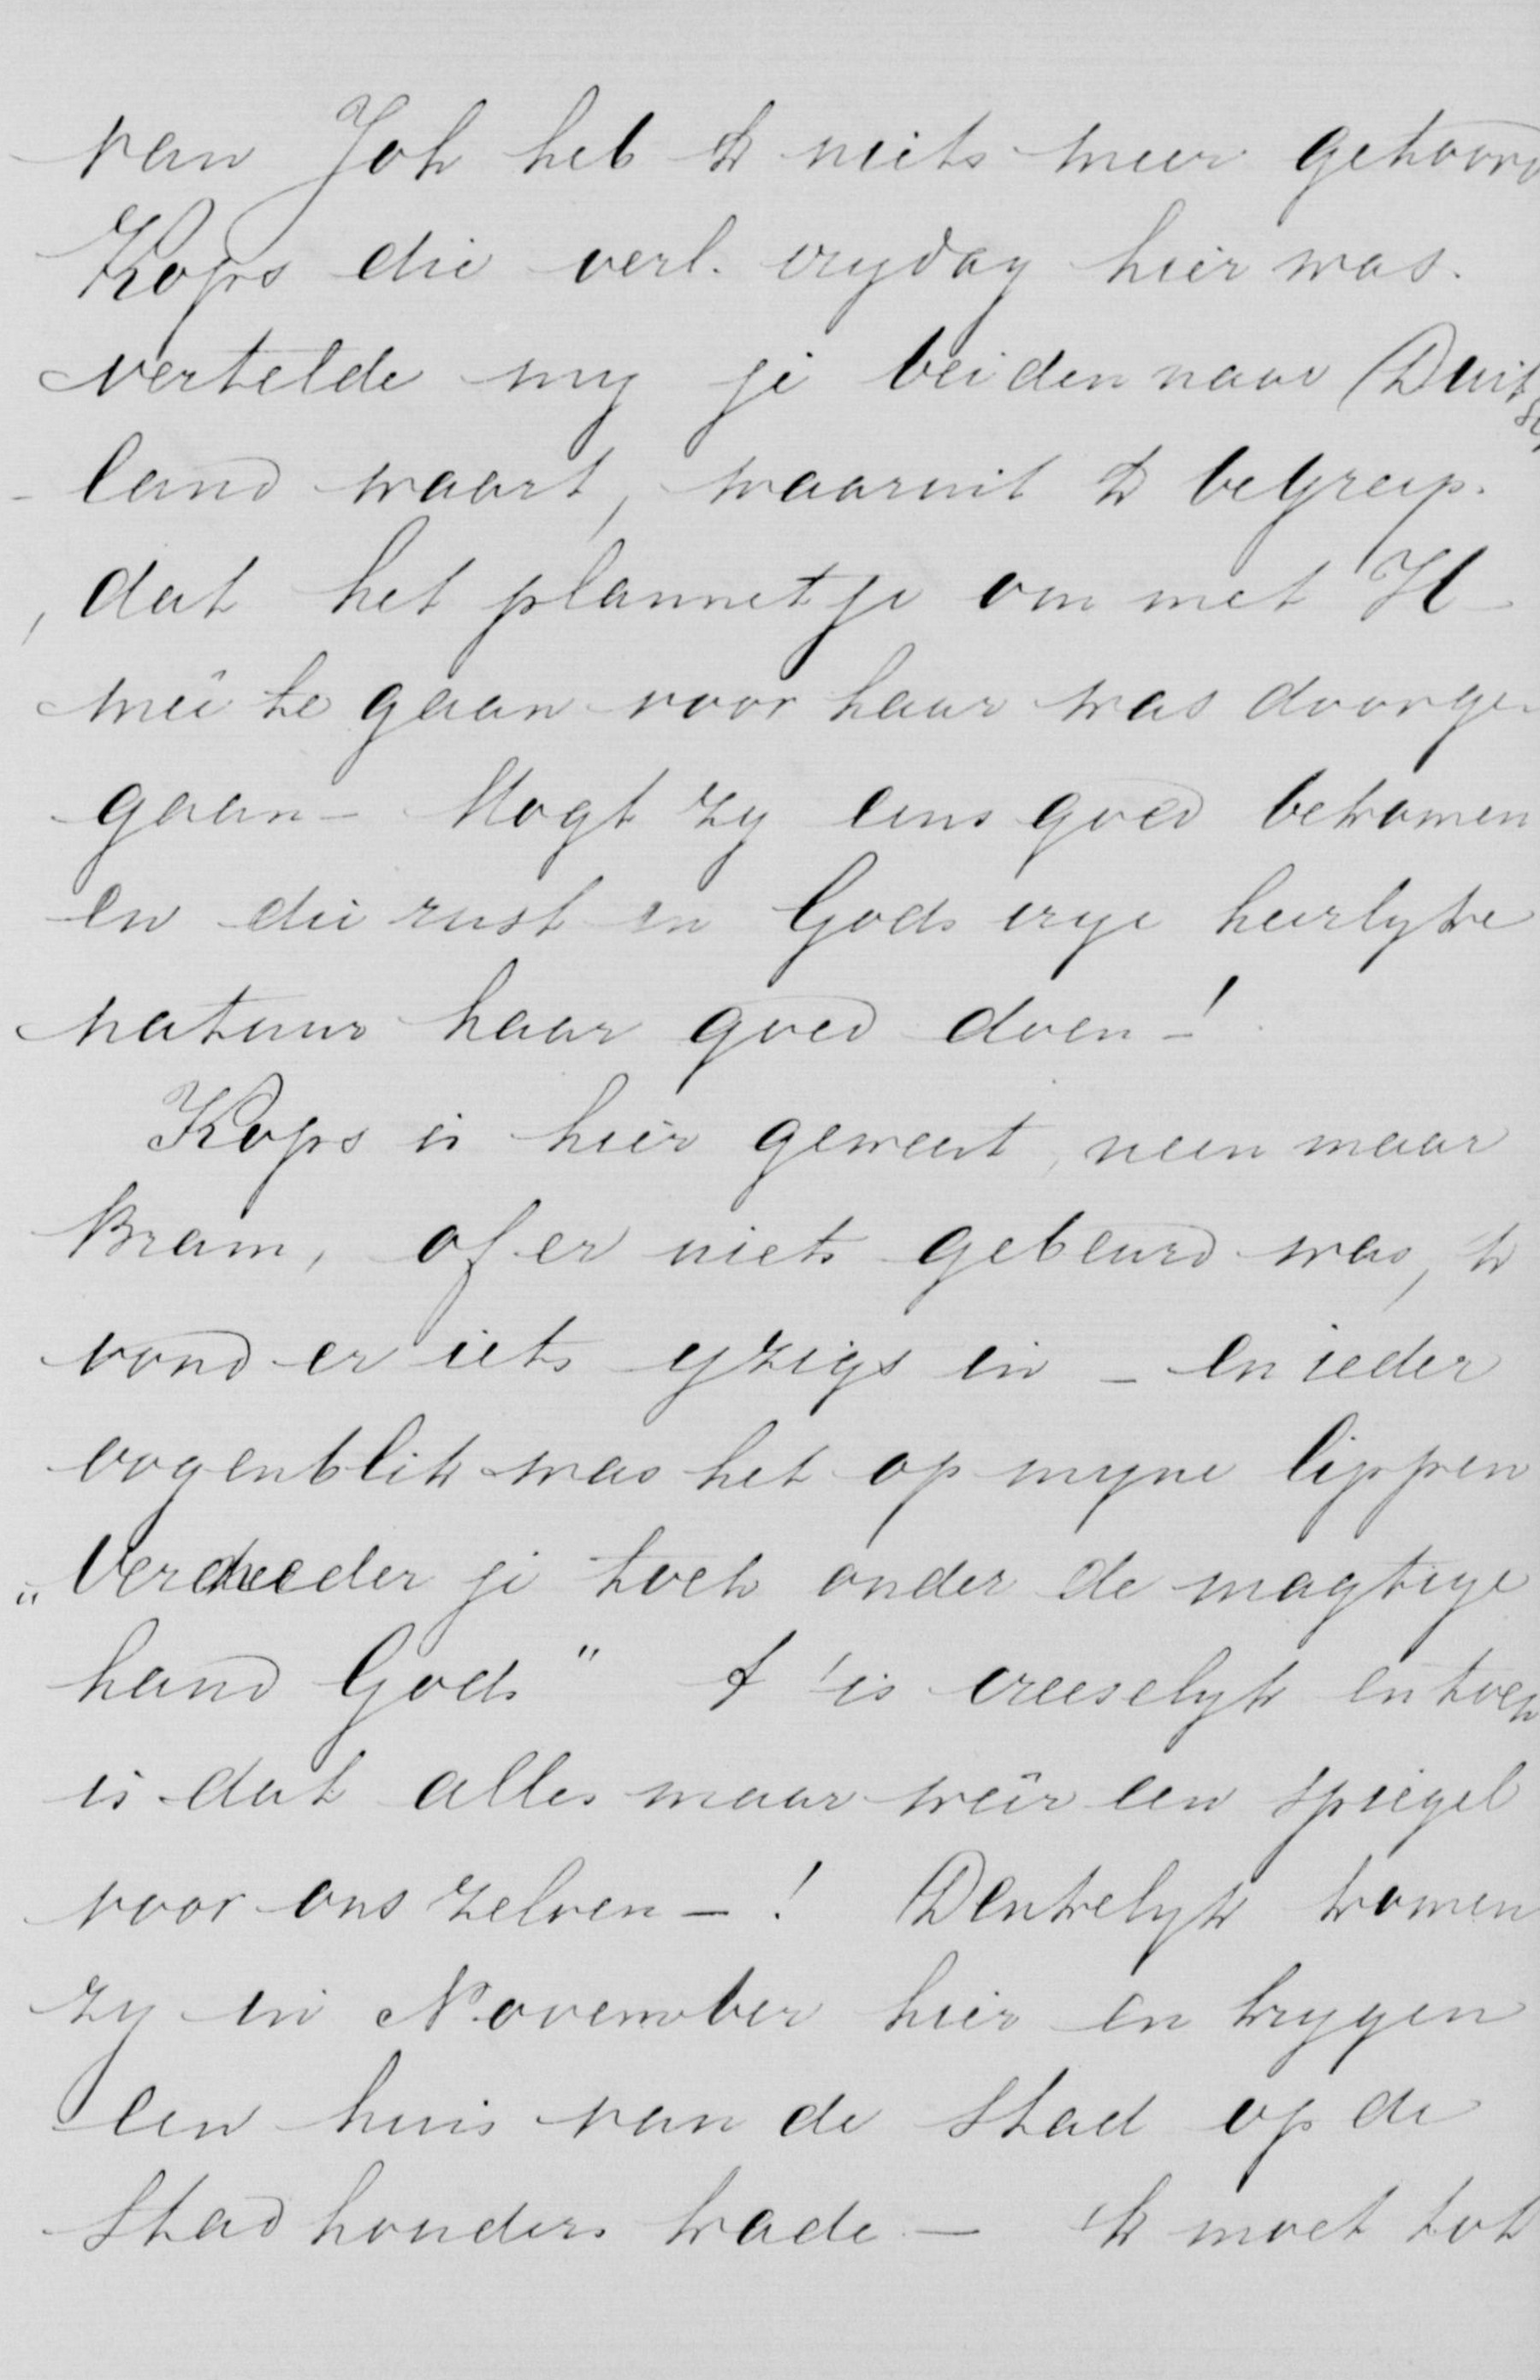 van Joh heb ik niets meer gehoord
Kops die verl. vrydag hier was.
vertelde my je beiden naar Duitsch
land waart, waaruit ik begreep.
, dat het plannetje om met H
meê te gaan voor haar was doorge-
gaan - Mogt zy eens goed bekomen
en die rust in Gods vrye heerlyke
natuur haar goed doen - !
Kops is hier geweest, neen maar
Bram, of er niets gebeurd was, ik
vond er iets yzigs in - en ieder
oogenblik was het op myne lippen
„Verneder je toch onder de magtige
hand Gods" 't is vreeselyk en toch
is dat alles maar weêr een spiegel
voor ons zelven - ! Denkelyk komen
zy in November hier en krygen
een huis van de stad op de
Stadhouders kade - ik moet tot